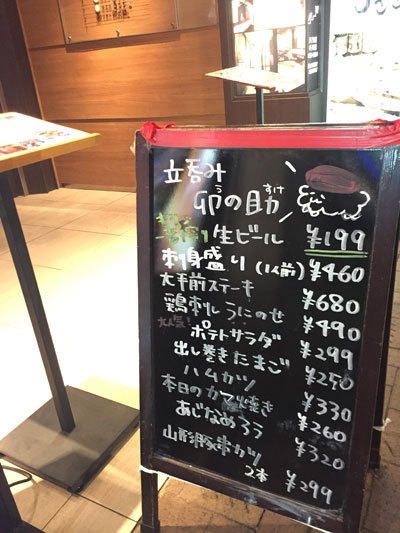 立呑み
卯の助
う すけ
生ビール ¥199
刺身盛り(1人前) ¥460
大手前ステーキ ¥680
鶏刺しうにのせ ¥490
ポテトサラダ ¥299
出し巻きたまご ¥250
ハムカツ ¥330
本日のカマ焼き ¥260
あじなめろう ¥320
山形豚串カツ
2本 ¥299